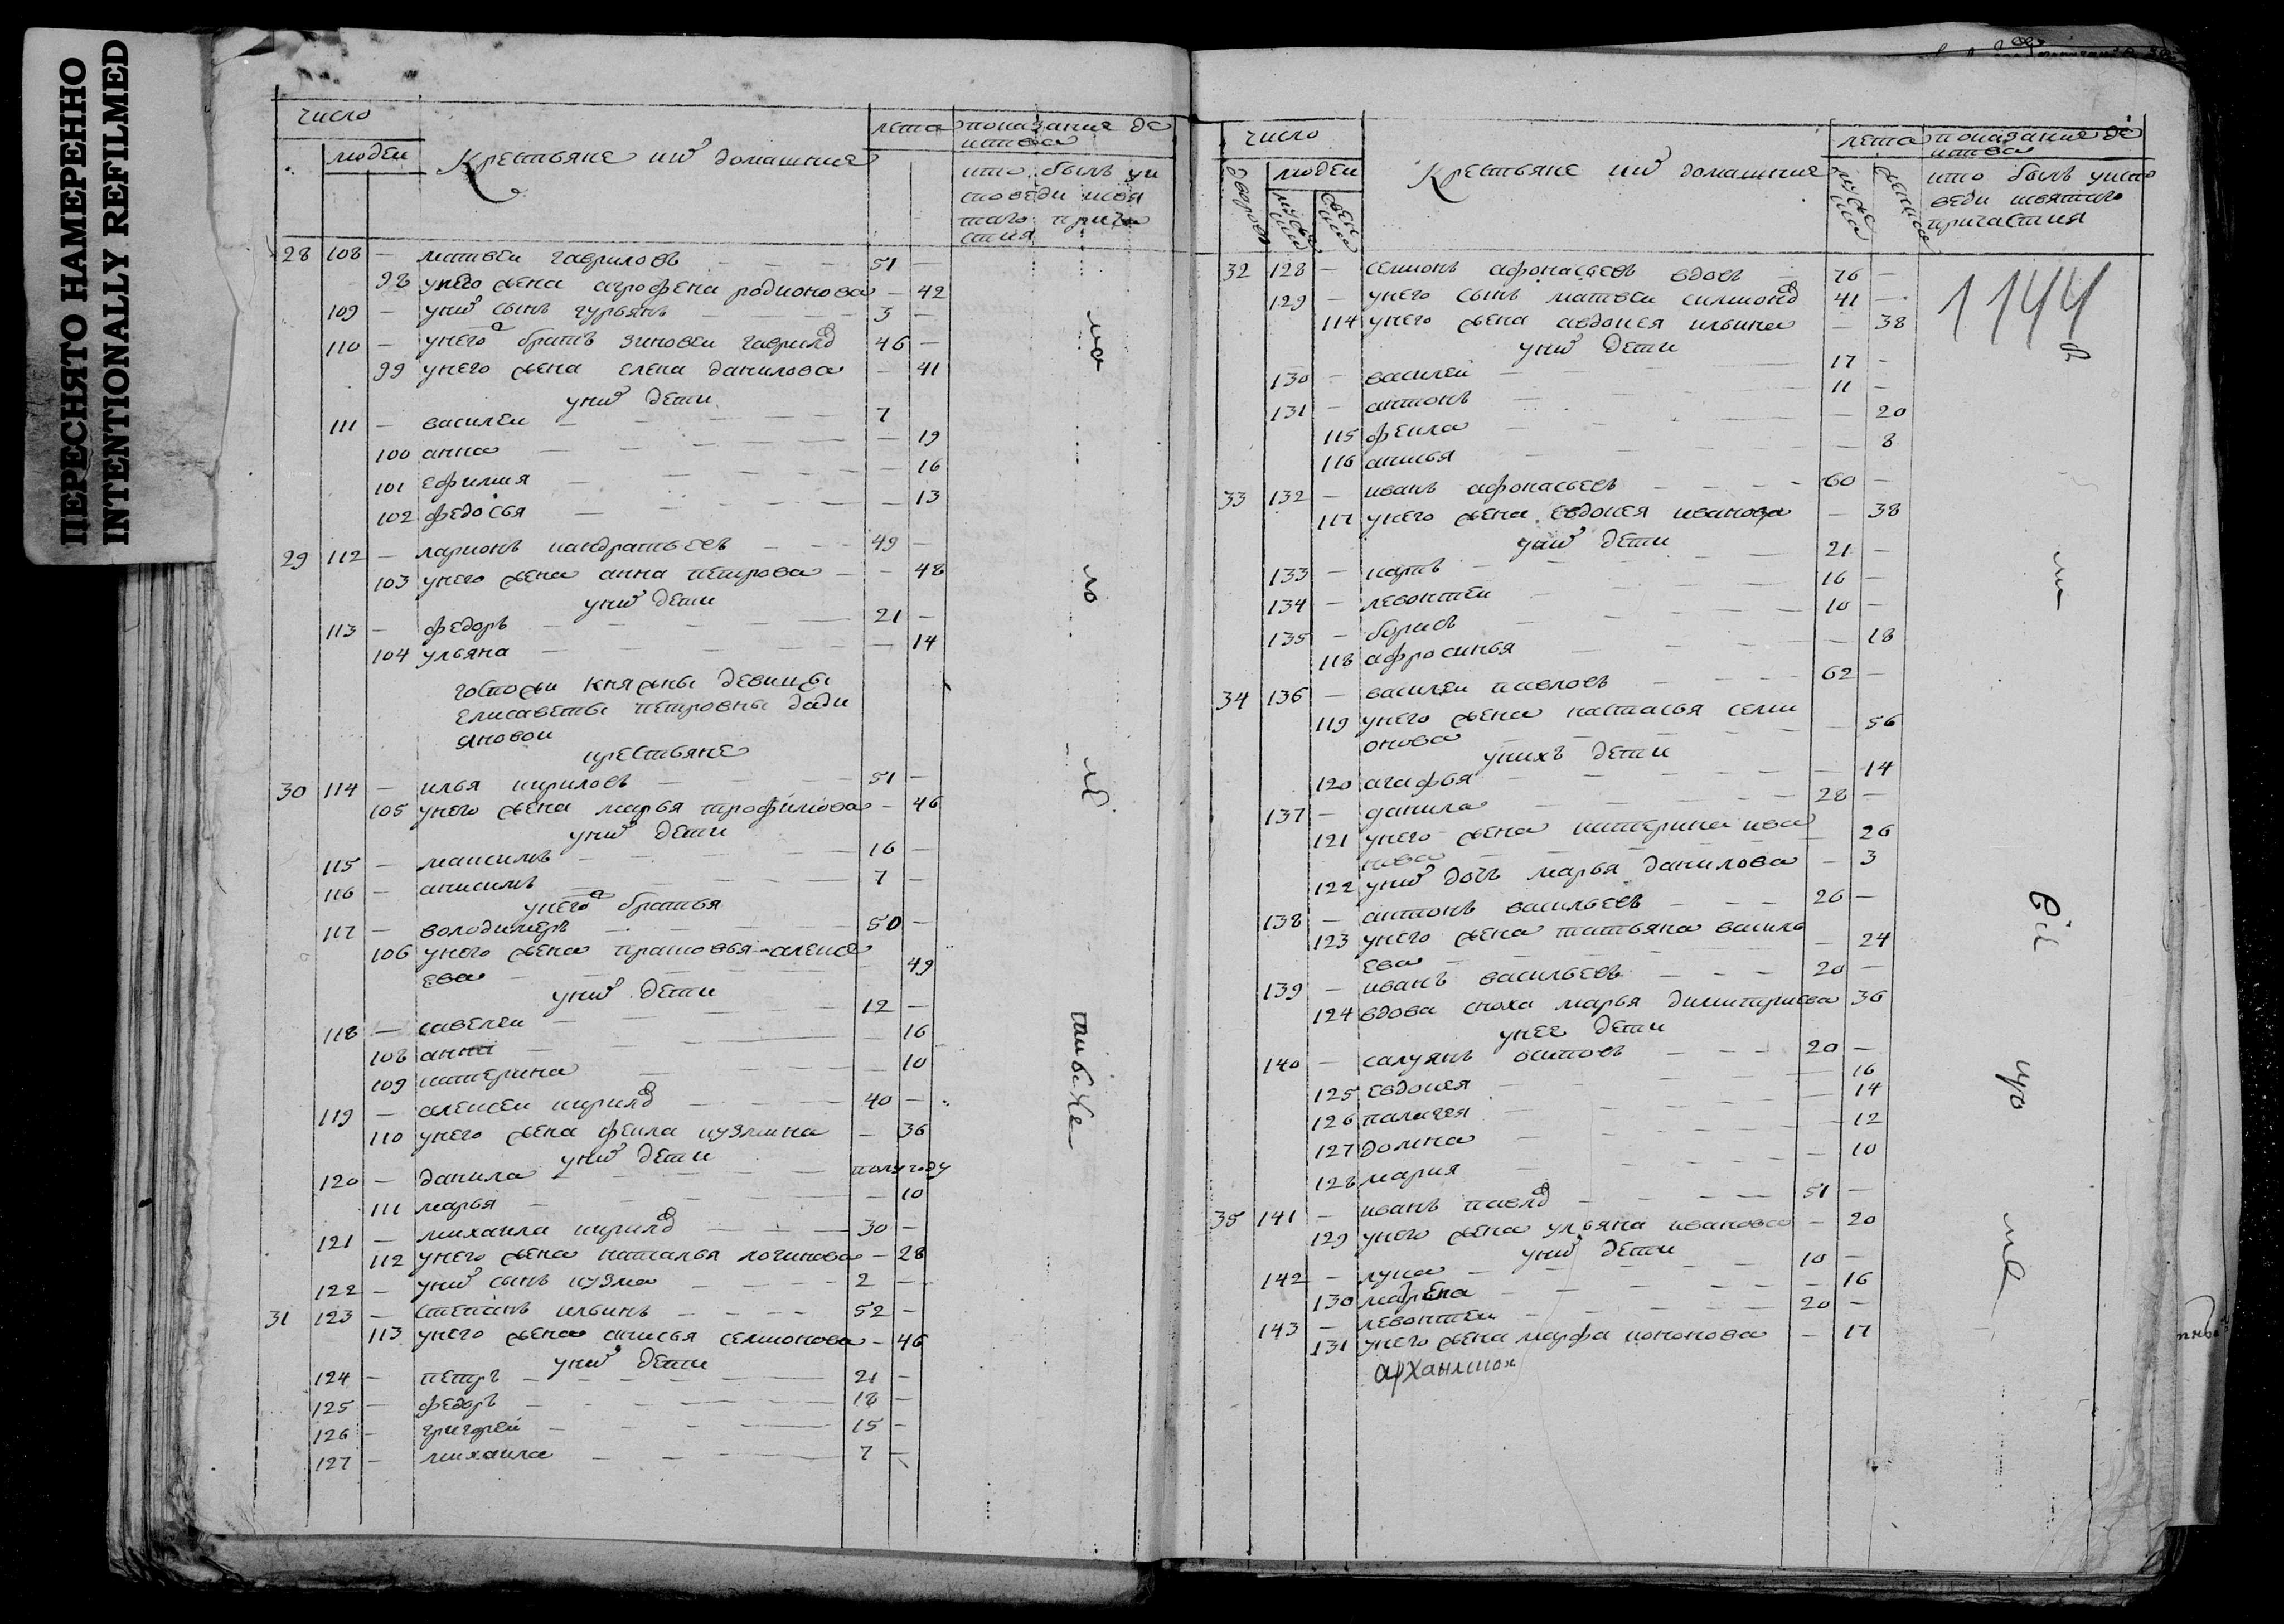 ПЕРЕСНЯТО НАМЕРЕННО
INTENTIONALLY REFILMED
число
людеи
Крестьяне ихъ домашние
лета
показание де
иства
кто былъ уи
споведи исвя
таго прича
стия
28 108 – матвеи гавриловъ – 51 –
98 унего жена агрофена родионова – 42
109 – унихъ сынъ гурьянъ – 3 –
110 – унего братъ зиновеи гаврилов 46 –
99 унего жена елена данилова – 41
унихъ дети
111 – василеи – 7
100 анна – 19
101 ефимия – 16
102 федосья – 13
29 112 – ларионъ кандратьевъ – 49 –
103 унего жена анна петрова – 48
унихъ дети
113 – федоръ – 21 –
104 ульяна – 14
госпожи княжны девицы
елисаветы петровны дади
ановои
крестьяне
30 114 – илья кириловъ – 51 –
105 унего жена марья трофимова – 46
унихъ дети
115 – максимъ – 16 –
116 – анисимъ – 7 –
унего братья
117 – володимеръ – 50 –
106 унего жена прасковья алексе
ева – 49
унихъ дети
118 – савелеи – 12 –
108 анна – 16
109 катерина – 10
119 – алексеи кирилов – 40 –
110 унего жена фекла кузмина – 36
унихъ дети
120 – данила – полугоду
111 марья – 10
121 – михаила кирилов – 30 –
112 унего жена наталья логинова – 28
122 – унихъ сынъ кузма – 2 –
31 123 – степанъ ильинъ – 52 –
113 унего жена анисья семионова – 46
унихъ дети
124 – петръ – 21 –
125 – федоръ – 18 –
126 – григореи – 15 –
127 – михаила – 7 –
число
дворовъ
людеи
Крестьяне ихъ домашние
лета
показание де
иства
кто былъ уиспо
веди исвятаго
причастия
1144
32 128 – семионъ афонасьевъ вдовъ – 76 –
129 – унего сынъ матвеи симионов 41 –
114 унего жена авдокея ильина – 38
унихъ дети
130 – василеи – 17 –
131 – антонъ – 11 –
115 фекла – 20
116 анисья – 8
33 132 – иванъ афонасьевъ – 60 –
117 унего жена евдокея иванова – 38
унихъ дети
133 – карпъ – 21 –
134 – левонтеи – 16 –
135 – борисъ – 10 –
118 афросинья – 18
34 136 – василеи павловъ – 62 –
119 унего жена настасья семи
онова – 56
унихъ дети
120 агафья – 14
137 – данила – 28 –
121 унего жена катерина ива
нова – 26
122 унихъ дочь марья данилова – 3
138 – антонъ васильевъ – 26 –
123 унего жена татьяна василь
ева – 24
139 – иванъ васильевъ – 20 –
124 вдова сноха марья димитриева 36
унее дети
140 – салуянъ осиповъ – 20 –
125 евдокея – 16
126 палагея – 14
127 домна – 12
128 мария – 10
35 141 – иванъ павлов – 51 –
129 унего жена ульяна иванова – 20
унихъ дети
142 – лука – 10 –
130 мафена – 16
143 – левонтеи – 20 –
131 унего жена марфа кононова – 17